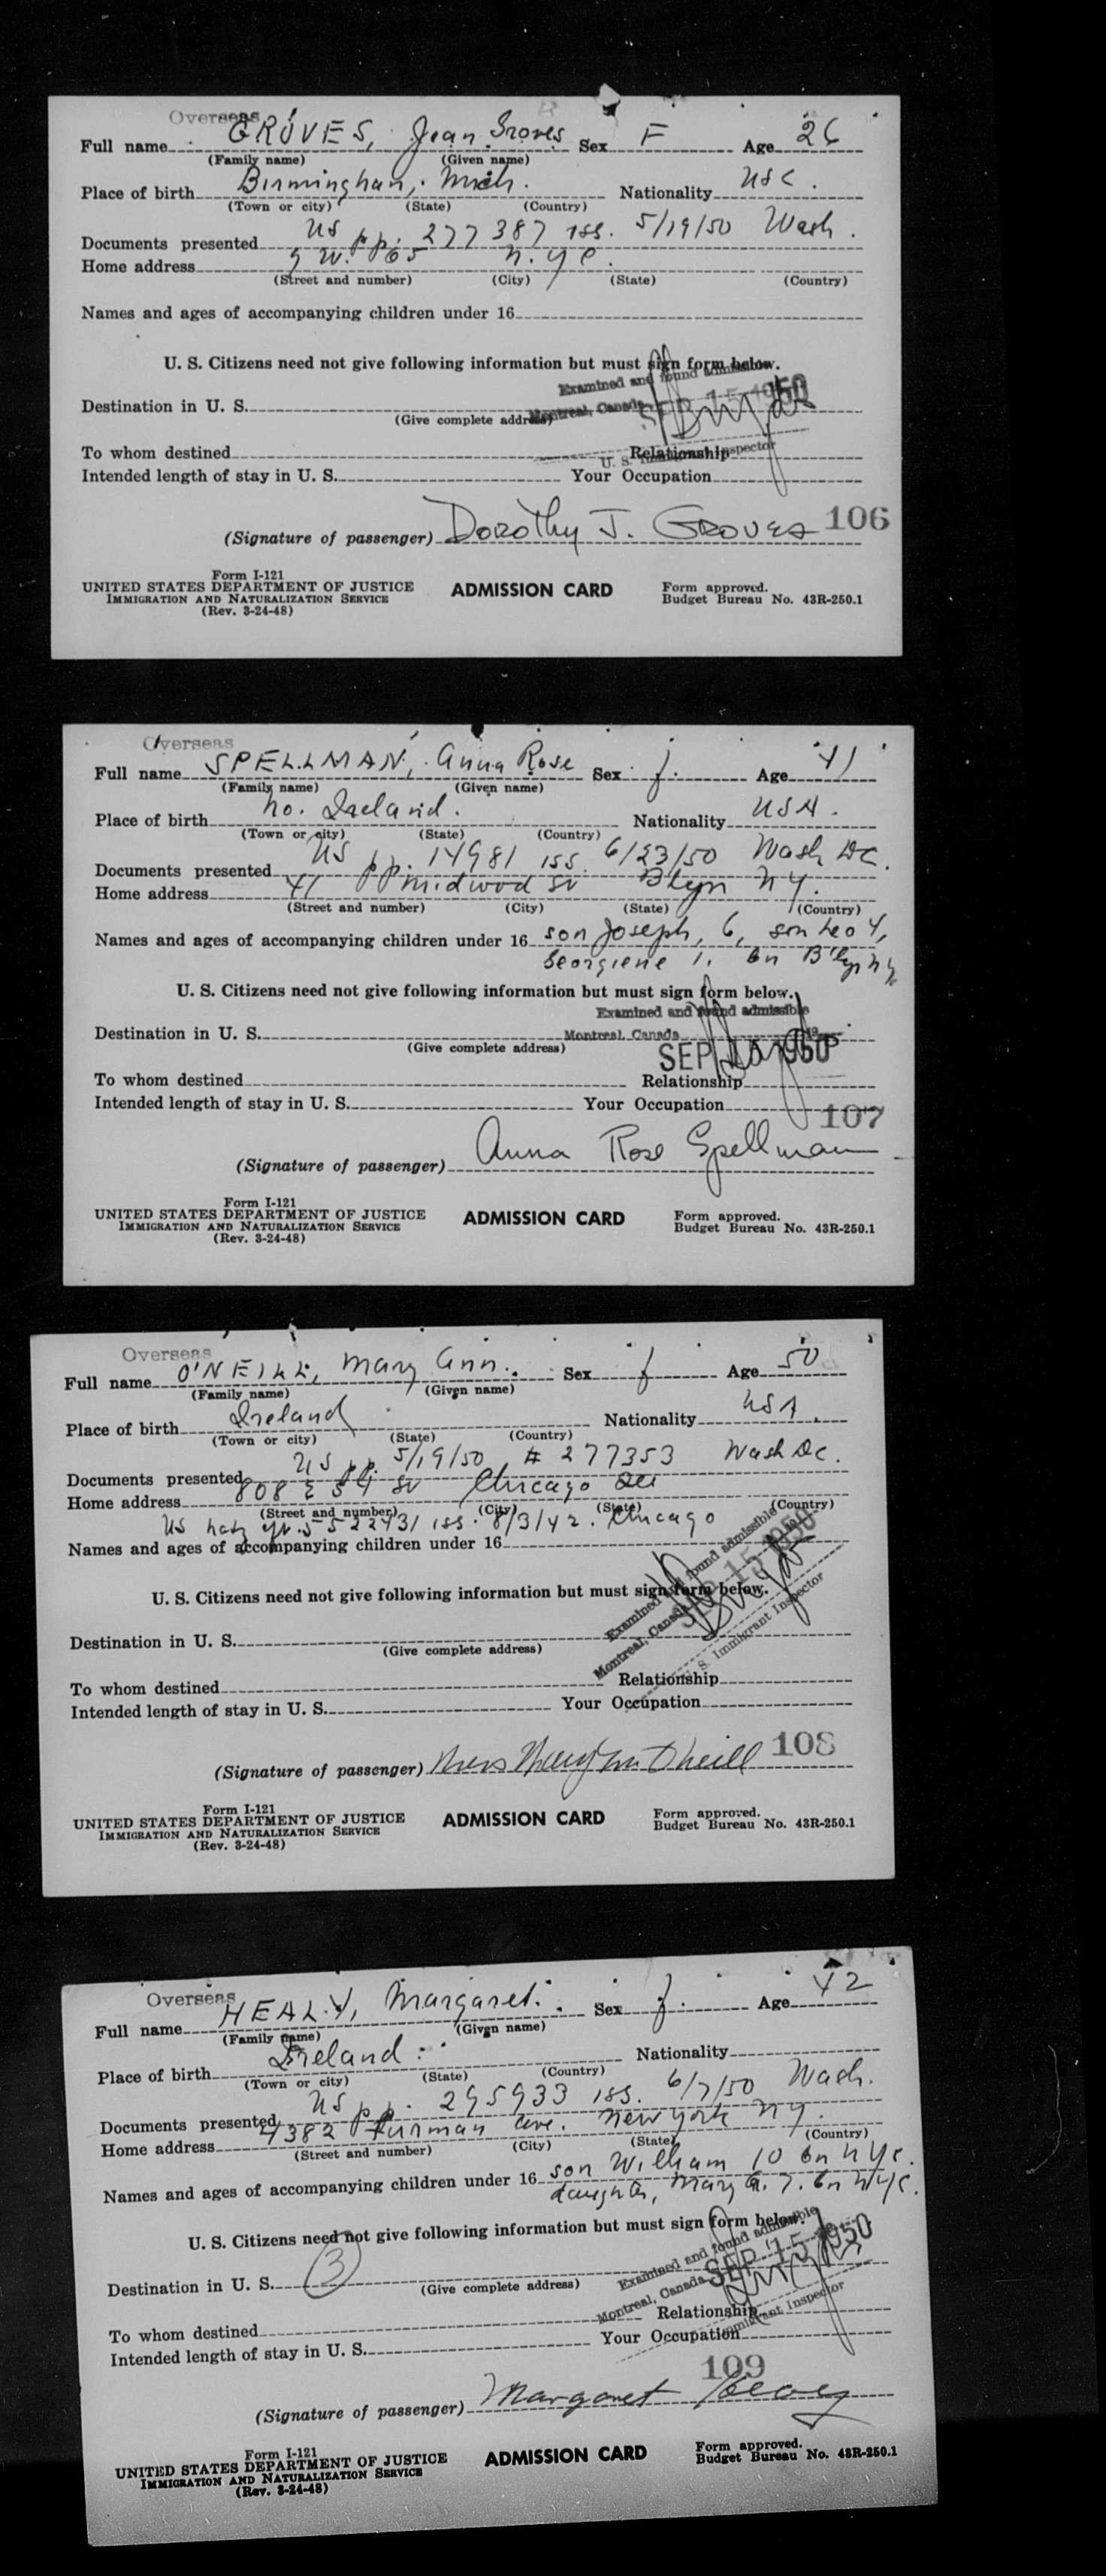 Overseas
Full name GROVES, Jean Groves Sex F Age 26
(Family name) (Given name)
Place of birth Birmingham, Mich. Nationality USC.
(Town or city) (State) (Country)
Documents presented US pp. 277387 iss. 5/19/50 Wash.
Home address 9 W. 65 N.Y.C.
(Street and number) (City) (State) (Country)
Names and ages of accompanying children under 16
U. S. Citizens need not give following information but must sign form below.
Examined and found admissible
Destination in U. S. Montreal, Canada SEP 15 1950
(Give complete address)
To whom destined Relationship
U. S. Immigrant Inspector
Intended length of stay in U. S. Your Occupation
106
(Signature of passenger) Dorothy J. Groves
Form I-121
UNITED STATES DEPARTMENT OF JUSTICE ADMISSION CARD Form approved.
IMMIGRATION AND NATURALIZATION SERVICE Budget Bureau No. 43R-250.1
(Rev. 3-24-48)
Overseas
Full name SPELLMAN, Anna Rose Sex f. Age 41
(Family name) (Given name)
Place of birth no. Ireland. Nationality USA.
(Town or city) (State) (Country)
Documents presented US pp. 14981 iss. 6/23/50 Wash DC.
Home address 41 Midwood St Blyn NY.
(Street and number) (City) (State) (Country)
Names and ages of accompanying children under 16 son Joseph, 6, son Leo 4,
Georgiene 1. bn B'lyn NY
U. S. Citizens need not give following information but must sign form below.
Examined and found admissible
Destination in U. S. Montreal, Canada
(Give complete address) SEP 1950
To whom destined Relationship
Intended length of stay in U. S. Your Occupation
107
(Signature of passenger) Anna Rose Spellman
Form I-121
UNITED STATES DEPARTMENT OF JUSTICE ADMISSION CARD Form approved.
IMMIGRATION AND NATURALIZATION SERVICE Budget Bureau No. 43R-250.1
(Rev. 3-24-48)
Overseas
Full name O'NEILL, Mary Ann. Sex f Age 50
(Family name) (Given name)
Place of birth Ireland Nationality USA.
(Town or city) (State) (Country)
Documents presented US pp. 5/19/50 # 277353 Wash DC.
Home address 808 E 54 St Chicago Ill
(Street and number) (City) (State) (Country)
US natz 5522431 iss. 8/3/42. Chicago
Names and ages of accompanying children under 16
Examined and found admissible
Montreal, Canada SEP 15 1950
U. S. Immigrant Inspector
U. S. Citizens need not give following information but must sign form below.
Destination in U. S.
(Give complete address)
To whom destined Relationship
Intended length of stay in U. S. Your Occupation
108
(Signature of passenger) Mrs Mary Ann O'Neill
Form I-121
UNITED STATES DEPARTMENT OF JUSTICE ADMISSION CARD Form approved.
IMMIGRATION AND NATURALIZATION SERVICE Budget Bureau No. 43R-250.1
(Rev. 3-24-48)
Overseas
Full name HEALY, Margaret. Sex f. Age 42
(Family name) (Given name)
Place of birth Ireland Nationality
(Town or city) (State) (Country)
Documents presented US pp. 295933 iss. 6/7/50 Wash.
Home address 4382 Furman Ave. New York NY.
(Street and number) (City) (State) (Country)
Names and ages of accompanying children under 16 son William 10 bn NYC.
daughter, Mary A. 7. bn NYC.
U. S. Citizens need not give following information but must sign form below.
Examined and found admissible
Montreal, Canada SEP 15 1950
Immigrant Inspector
Destination in U. S. 3
(Give complete address)
To whom destined Relationship
Intended length of stay in U. S. Your Occupation
109
(Signature of passenger) Margaret Healy
Form I-121
UNITED STATES DEPARTMENT OF JUSTICE ADMISSION CARD Form approved.
IMMIGRATION AND NATURALIZATION SERVICE Budget Bureau No. 43R-250.1
(Rev. 3-24-48)